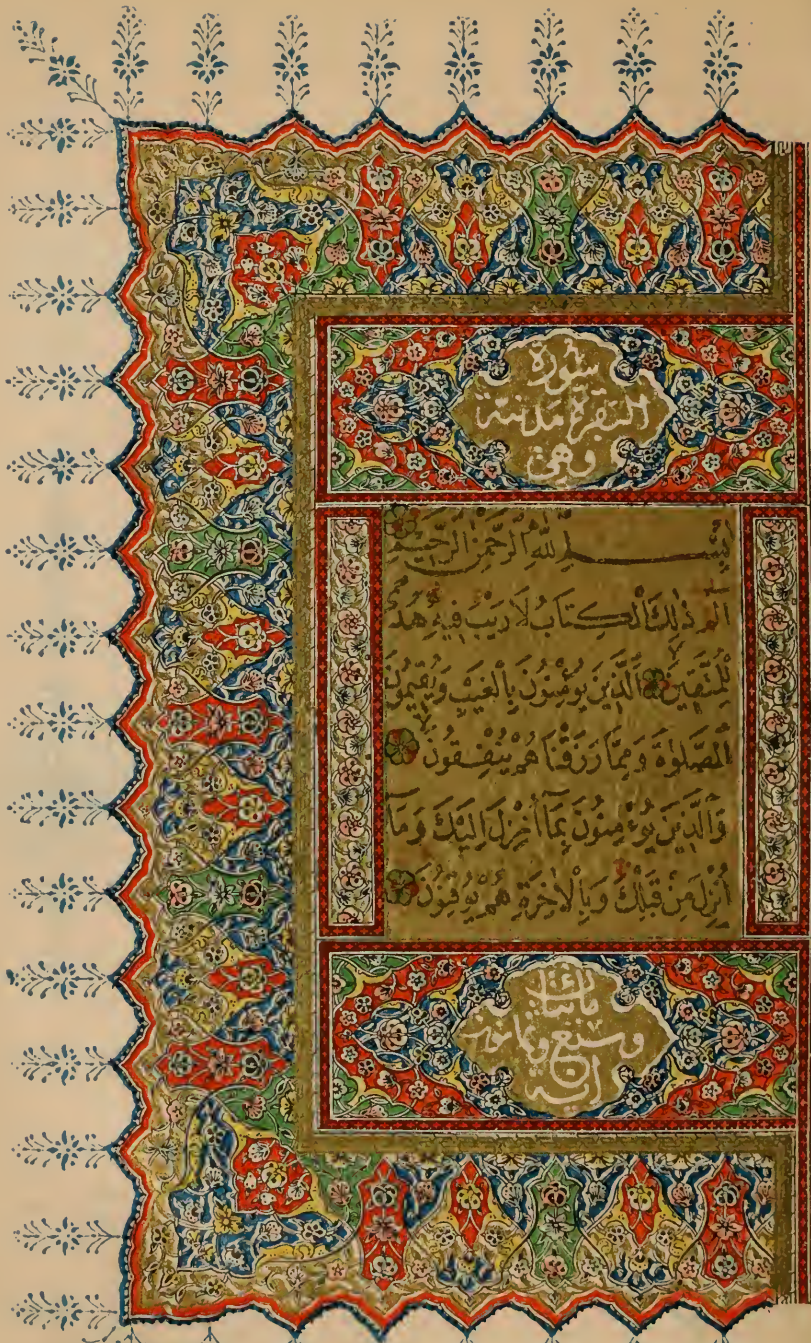 سورة
البقرة مدنية
وهي
بسم الله الرحمن الرحيم
الم ذلك الكتاب لا ريب فيه هد
للمتقين الذين يؤمنون بالغيب ويقيمون
الصلوة ومما رزقنا هم ينفقون
والذين يؤمنون بما أنزل اليك وما
أنزل من قبلك وبالاخرة هم يوقنون
مائتان
وسبع وثمانون
آية